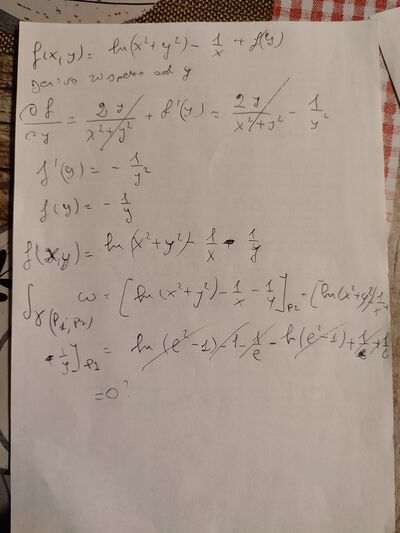 f(x,y) = ln(x²+y²) - 1/x + f(y)
Derivo rispetto ad y
∂f/∂y = 2y/(x²+y²) + f'(y) = 2y/(x²+y²) - 1/y²
f'(y) = - 1/y²
f(y) = - 1/y
f(x,y) = ln(x²+y²) - 1/x - 1/y
∫γ(P1;P2) ω = [ln(x²+y²) - 1/x - 1/y]P2 - [ln(x²+y²) - 1/x
- 1/y]P1 = ln(e²-1) - 1 - 1/e - ln(e²-1) + 1/e + 1/e
= 0?